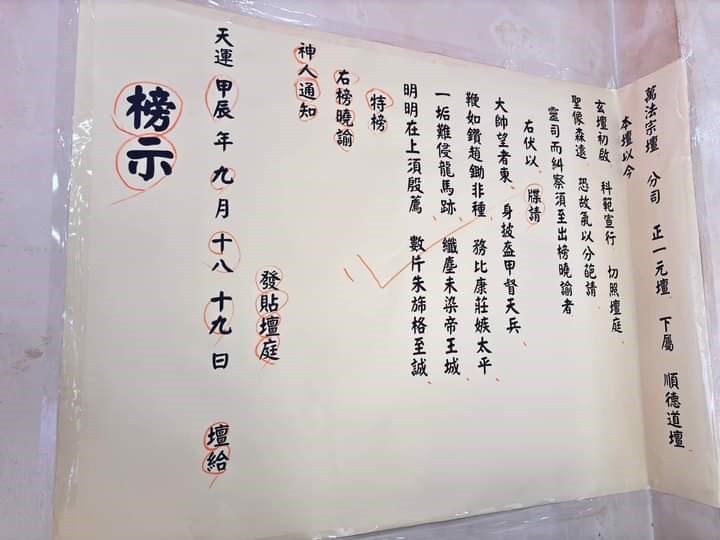 萬法宗壇　分司　正一元壇　下屬　順德道壇
本壇以今
玄壇初啟　科範宣行　切照壇庭
聖像森遠　恐故氣以分葩請
靈司而糾察須至出榜曉諭者
右伏以　牒請
大帥望者東　身披盔甲督天兵
鞭如鑽趙鋤非種　務比康莊嫉太平
一垢難侵龍馬跡　纖塵未染帝王城
明明在上須殷薦　數片朱旆格至誠
特榜
右榜曉諭
神人通知
發貼壇庭
天運甲辰年九月十八十九日　壇給
榜示